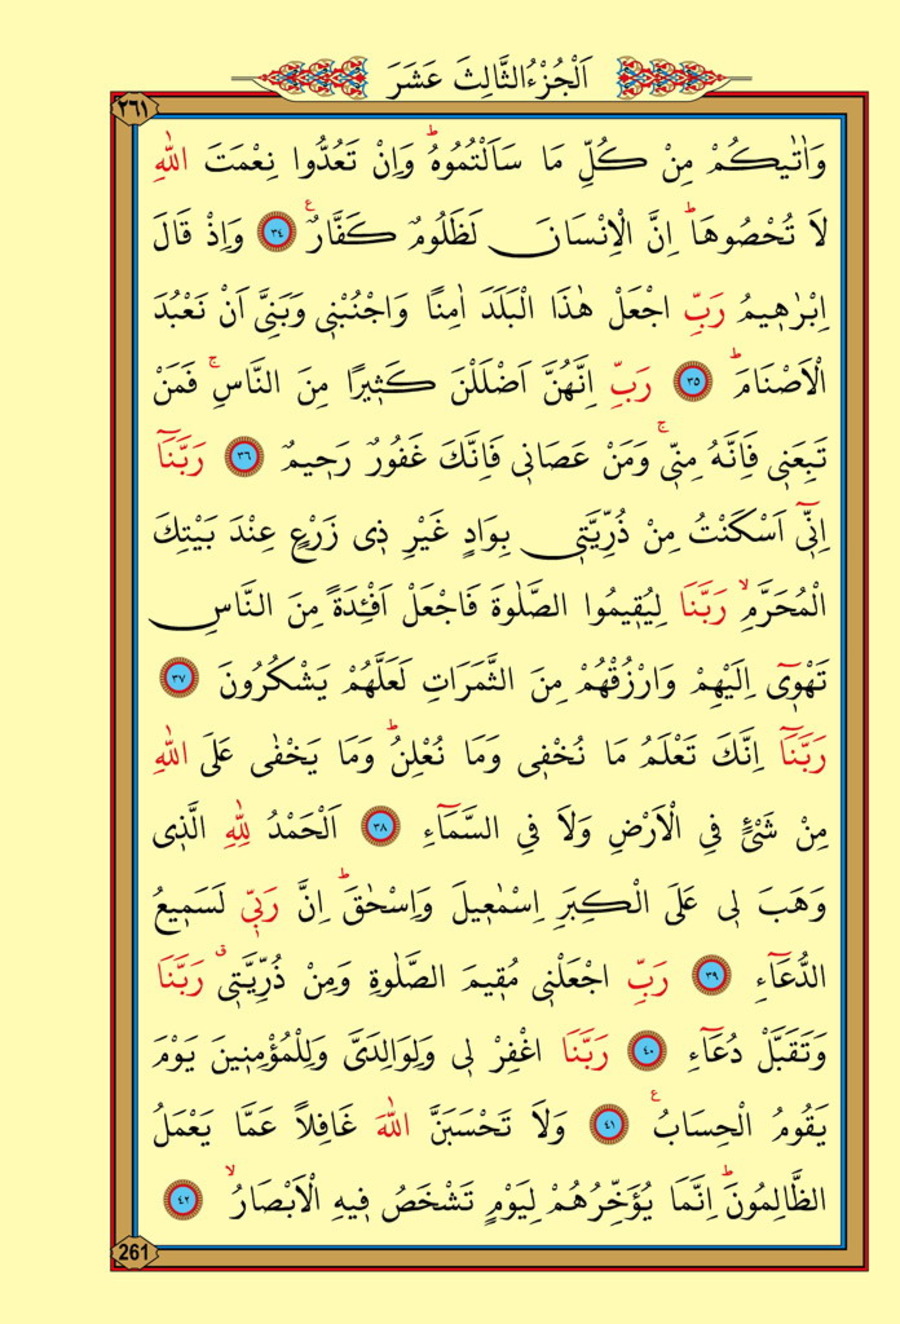 اَلْجُزْءُ الثَّالِثَ عَشَرَ
٢٦١
وَاٰتٰيكُمْ مِنْ كُلِّ مَا سَاَلْتُمُوهُۜ وَاِنْ تَعُدُّوا نِعْمَتَ اللّٰهِ
لَا تُحْصُوهَاۜ اِنَّ الْاِنْسَانَ لَظَلُومٌ كَفَّارٌ۟ ٣٤ وَاِذْ قَالَ
اِبْرٰه۪يمُ رَبِّ اجْعَلْ هٰذَا الْبَلَدَ اٰمِنًا وَاجْنُبْن۪ي وَبَنِيَّ اَنْ نَعْبُدَ
الْاَصْنَامَۜ ٣٥ رَبِّ اِنَّهُنَّ اَضْلَلْنَ كَث۪يرًا مِنَ النَّاسِۚ فَمَنْ
تَبِعَن۪ي فَاِنَّهُ مِنّ۪يۚ وَمَنْ عَصَان۪ي فَاِنَّكَ غَفُورٌ رَح۪يمٌ ٣٦ رَبَّنَٓا
اِنّ۪ٓي اَسْكَنْتُ مِنْ ذُرِّيَّت۪ي بِوَادٍ غَيْرِ ذ۪ي زَرْعٍ عِنْدَ بَيْتِكَ
الْمُحَرَّمِۙ رَبَّنَا لِيُق۪يمُوا الصَّلٰوةَ فَاجْعَلْ اَفْـِٔدَةً مِنَ النَّاسِ
تَهْو۪ٓي اِلَيْهِمْ وَارْزُقْهُمْ مِنَ الثَّمَرَاتِ لَعَلَّهُمْ يَشْكُرُونَ ٣٧
رَبَّنَٓا اِنَّكَ تَعْلَمُ مَا نُخْف۪ي وَمَا نُعْلِنُۜ وَمَا يَخْفٰى عَلَى اللّٰهِ
مِنْ شَيْءٍ فِي الْاَرْضِ وَلَا فِي السَّمَٓاءِ ٣٨ اَلْحَمْدُ لِلّٰهِ الَّذ۪ي
وَهَبَ ل۪ي عَلَى الْكِبَرِ اِسْمٰع۪يلَ وَاِسْحٰقَۜ اِنَّ رَبّ۪ي لَسَم۪يعُ
الدُّعَٓاءِ ٣٩ رَبِّ اجْعَلْن۪ي مُق۪يمَ الصَّلٰوةِ وَمِنْ ذُرِّيَّت۪يۗ رَبَّنَا
وَتَقَبَّلْ دُعَٓاءِ ٤٠ رَبَّنَا اغْفِرْ ل۪ي وَلِوَالِدَيَّ وَلِلْمُؤْمِن۪ينَ يَوْمَ
يَقُومُ الْحِسَابُ۟ ٤١ وَلَا تَحْسَبَنَّ اللّٰهَ غَافِلًا عَمَّا يَعْمَلُ
الظَّالِمُونَۜ اِنَّمَا يُؤَخِّرُهُمْ لِيَوْمٍ تَشْخَصُ ف۪يهِ الْاَبْصَارُۙ ٤٢
261